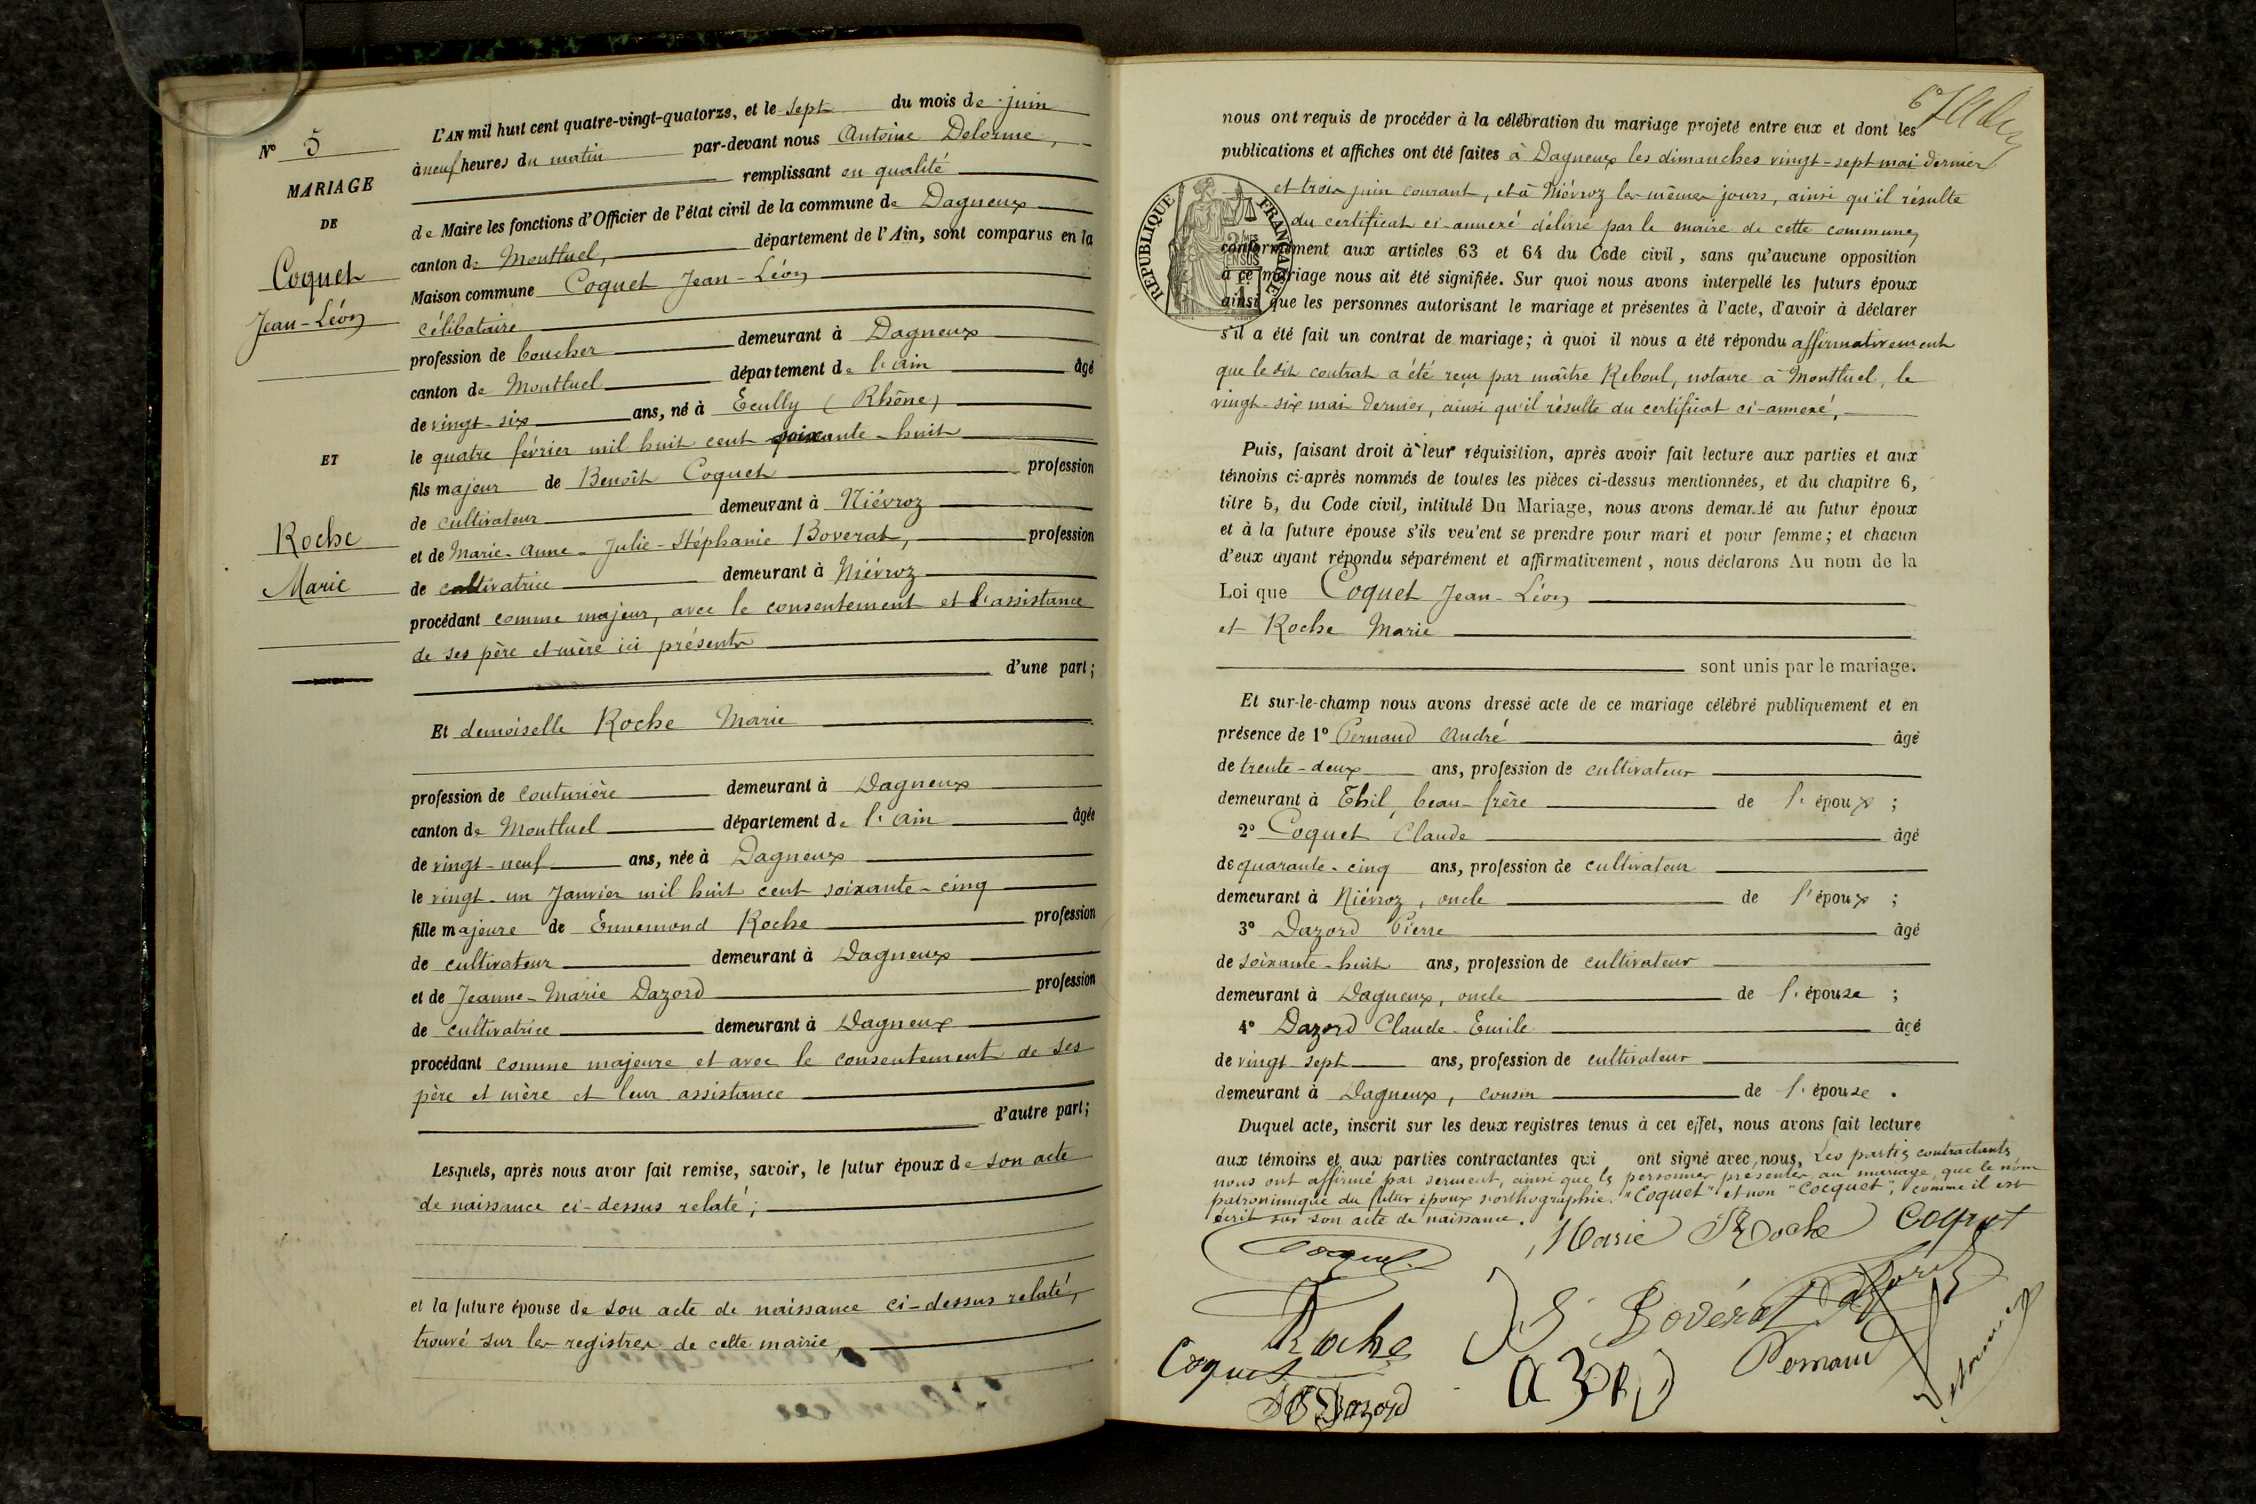 N° 5
MARIAGE
DE
Coquet
Jean-Léon
ET
Roche
Marie
L'AN mil huit cent quatre-vingt-quatorze, et le sept du mois de juin
à neuf heures du matin par-devant nous Antoine Delorme,
remplissant en qualité
de Maire les fonctions d'Officier de l'état civil de la commune de Dagneux
canton de Montluel, département de l'Ain, sont comparus en la
Maison commune Coquet Jean-Léon
célibataire
profession de boucher demeurant à Dagneux
canton de Montluel département de l'Ain âgé
de vingt-six ans, né à Ecully (Rhône)
le quatre février mil huit cent soixante-huit
fils majeur de Benoît Coquet profession
de cultivateur demeurant à Niévroz
et de Marie-Anne-Julie-Stéphanie Boverat, profession
de cultivatrice demeurant à Niévroz
procédant comme majeur, avec le consentement et l'assistance
de ses père et mère ici présents
d'une part;
Et demoiselle Roche Marie
profession de couturière demeurant à Dagneux
canton de Montluel département de l'Ain âgée
de vingt-neuf ans, née à Dagneux
le vingt-un Janvier mil huit cent soixante-cinq
fille majeure de Ennemond Roche profession
de cultivateur demeurant à Dagneux
et de Jeanne-Marie Dazord profession
de cultivatrice demeurant à Dagneux
procédant comme majeure et avec le consentement de ses
père et mère et leur assistance
d'autre part;
Lesquels, après nous avoir fait remise, savoir, le futur époux de son acte
de naissance ci-dessus relaté;
et la future épouse de son acte de naissance ci-dessus relaté,
trouvé sur les registres de cette mairie,
nous ont requis de procéder à la célébration du mariage projeté entre eux et dont les
publications et affiches ont été faites à Dagneux les dimanches vingt-sept mai dernier
et trois juin courant, et à Niévroz les mêmes jours, ainsi qu'il résulte
du certificat ci-annexé délivré par le maire de cette commune,
RÉPUBLIQUE FRANÇAISE
conformément aux articles 63 et 64 du Code civil, sans qu'aucune opposition
à ce mariage nous ait été signifiée. Sur quoi nous avons interpellé les futurs époux
ainsi que les personnes autorisant le mariage et présentes à l'acte, d'avoir à déclarer
s'il a été fait un contrat de mariage; à quoi il nous a été répondu affirmativement
que le dit contrat a été reçu par maître Reboul, notaire à Montluel, le
vingt-six mai dernier, ainsi qu'il résulte du certificat ci-annexé,
Puis, faisant droit à leur réquisition, après avoir fait lecture aux parties et aux
témoins ci-après nommés de toutes les pièces ci-dessus mentionnées, et du chapitre 6,
titre 5, du Code civil, intitulé Du Mariage, nous avons demandé au futur époux
et à la future épouse s'ils veulent se prendre pour mari et pour femme; et chacun
d'eux ayant répondu séparément et affirmativement, nous déclarons Au nom de la
Loi que Coquet Jean-Léon
et Roche Marie
sont unis par le mariage.
Et sur-le-champ nous avons dressé acte de ce mariage célébré publiquement et en
présence de 1° Pernaud André âgé
de trente-deux ans, profession de cultivateur
demeurant à Thil, beau-frère de l'époux ;
2° Coquet Claude âgé
de quarante-cinq ans, profession de cultivateur
demeurant à Niévroz, oncle de l'époux ;
3° Dazord Pierre âgé
de soixante-huit ans, profession de cultivateur
demeurant à Dagneux, oncle de l'épouse ;
4° Dazord Claude-Emile âgé
de vingt-sept ans, profession de cultivateur
demeurant à Dagneux, cousin de l'épouse .
Duquel acte, inscrit sur les deux registres tenus à cet effet, nous avons fait lecture
aux témoins et aux parties contractantes qui ont signé avec nous, Les partis contractants
nous ont affirmé par serment, ainsi que les personnes présentes au mariage, que le nom
patronimique du futur époux s'orthographie "Coquet" et non "Cocquet", comme il est
écrit sur son acte de naissance.
Marie Roche Coquet
Coquet
Roche J S Bovérat Dazord
Coquet Pernaud
Dazord